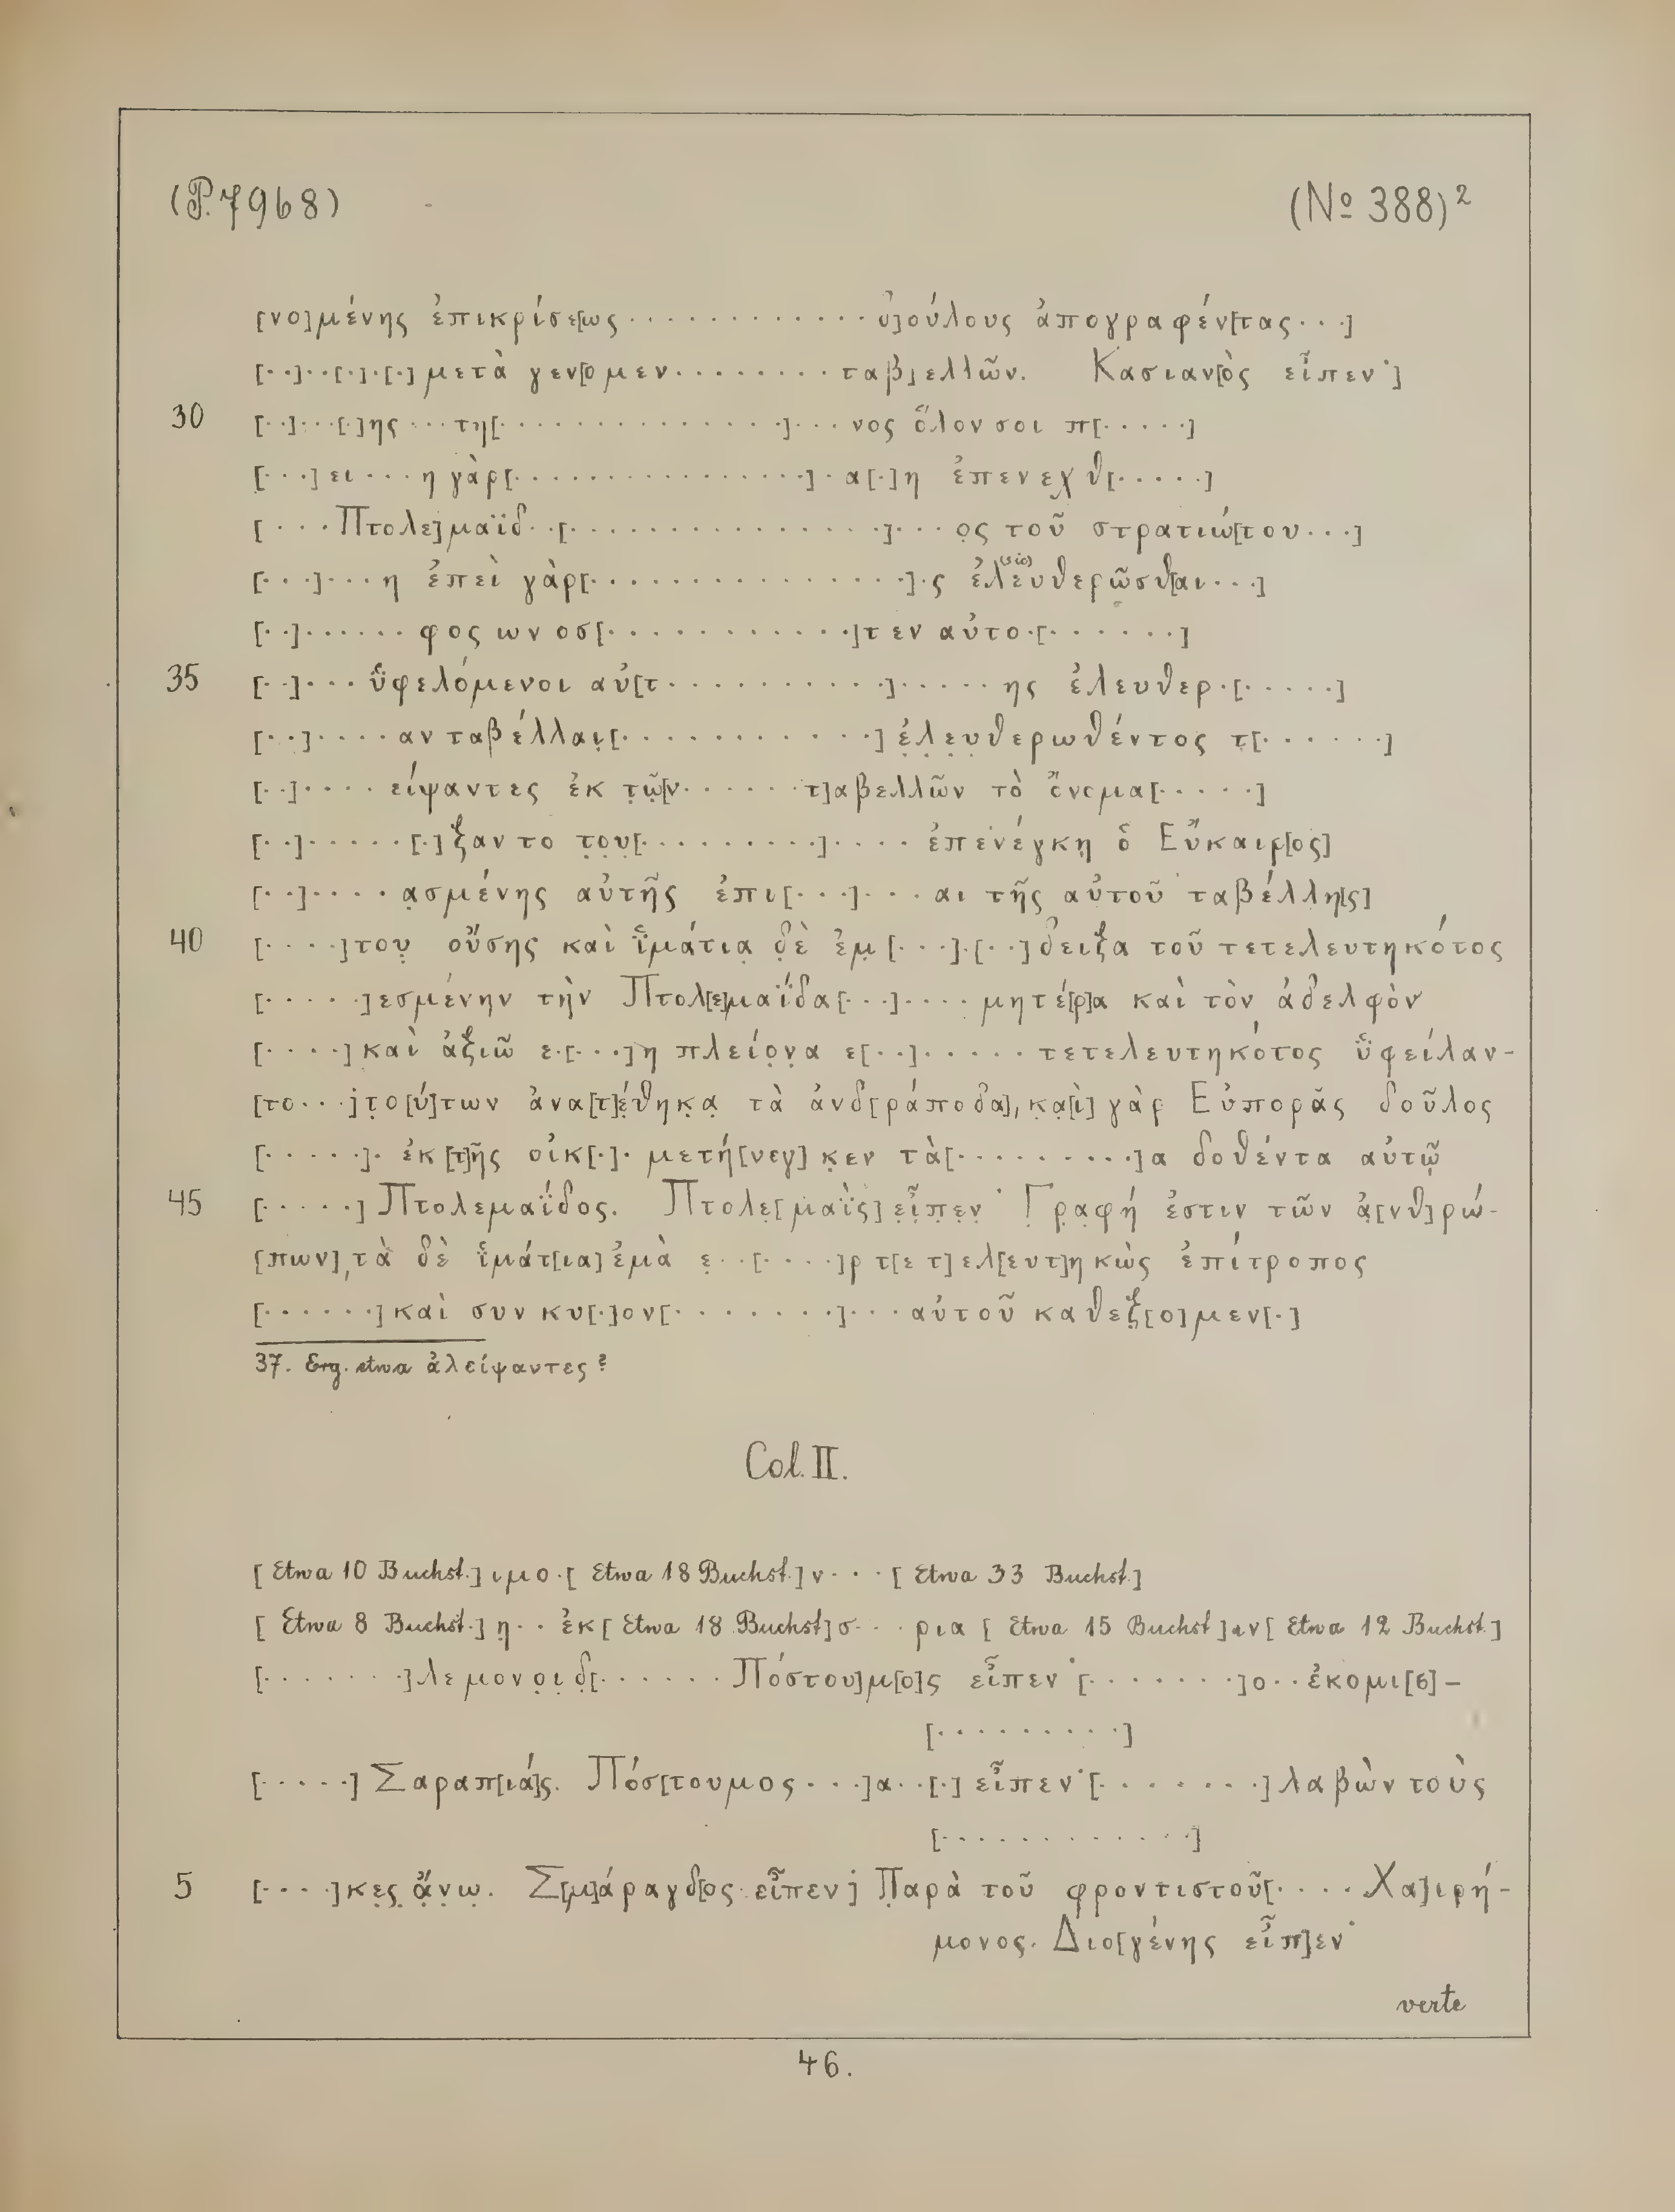 (P. 7968) (No 388)²
[νο]μένης ἐπικρίσε[ως · · · · · · · · · · · · δ]ούλους ἀπογραφέν[τας · · ·]
[· ·] · · [·] · [·] μετὰ γεν[ομεν · · · · · · · · ταβ]ελλῶν. Κασιαν[ὸς εἶπεν ˙]
30 [· ·] · · · [·]ης · · · τη[· · · · · · · · · · · · · ·] · · · νος ὅλον σοι π[· · · · ·]
[· · ·] ει · · · η γὰρ[· · · · · · · · · · · · · · ·] · α[·]η ἐπενεχθ[· · · · ·]
[· · · Πτολε]μαϊδ · · [· · · · · · · · · · · · · · ·] · · · ος τοῦ στρατιώ[του · · ·]
[· · ·] · · · η ἐπεὶ γὰρ[· · · · · · · · · · · · · · · ·] · ς ἐλευθερῶσθ[αι · · ·]
[· ·] · · · · · · φος ων οσ[· · · · · · · · · · · ·]τεν αὐτο · [· · · · · · ·]
35 [· ·] · · · ὑφελόμενοι αὐ[τ · · · · · · · · · · ·] · · · · · ης ἐλευθερ · [· · · · ·]
[· ·] · · · · αν ταβέλλαι̣[· · · · · · · · · · · ·] ἐ̣λ̣ε̣υ̣θερωθέντος τ̣[· · · · · ·]
[· ·] · · · · είψαντες ἐκ τ̣ῶ̣[ν · · · · · · τ]αβελλῶν τὸ ὄνομα[· · · · ·]
[· ·] · · · · · · [·] ξαντο τ̣ο̣υ̣[· · · · · · · · ·] · · · · ἐπενέγκῃ ὁ Εὔκαιρ̣[ος]
[· ·] · · · · α̣σμένης αὐτῆς ἐπι[· · ·] · · · αι τῆς αὐτοῦ ταβέλλη[ς]
40 [· · · ·]του̣ οὔσης καὶ ἱ̈μάτια̣ δ̣ὲ ἐμ̣ [· · ·] · [· ·] δειξα τοῦ τετελευτηκότος
[· · · · ·]εσμένην τὴν Πτολ[ε]μαΐδα[· · ·] · · · · μητέ[ρ]α καὶ τὸν ἀδελφὸν
[· · · ·] καὶ ἀξιῶ ε · [· · ·]η πλείο̣ν̣α ε[· ·] · · · · · τετελευτηκότος ὑ̈φείλαν-
[το · · ·]τ̣ο[ύ]των ἀνα[τ]έ̣θηκ̣α̣ τὰ ἀνδ[ράποδα], κ̣α̣[ὶ] γὰρ Εὐπορᾶς δοῦλος
[· · · · ·] · ἐκ [τ]ῆς οἰκ[·] · μετή[νεγ]κ̣εν τὰ[· · · · · · · · ·]α δοθέντα αὐτῷ
45 [· · · · ·] Πτολεμαΐδος. Πτολε̣[μαῒς] ε̣ἶ̣π̣ε̣ν̣ ˙ Γ̣ρ̣α̣φή ἐστιν τῶν ἀ̣[νθ]ρώ-
[πων], τὰ δὲ ἱ̈μάτ[ια] ἐμὰ ε̣ · · [· · · ·]ρ τ[ε τ]ελ[ευτ]ηκὼς ἐπίτροπος
[· · · · · ·] καὶ συν κυ[·]ον[· · · · · · · ·] · · · αὐτοῦ καθεξ̣[ο]μεν[·]
37. Erg. etwa ἀλείψαντες?
Col. II.
[Etwa 10 Buchst.] ιμο · [Etwa 18 Buchst.] ν · · · [Etwa 33 Buchst.]
[Etwa 8 Buchst.] η̣ · · ἐκ [Etwa 18 Buchst] σ · · · ρια [Etwa 15 Buchst] ιν [Etwa 12 Buchst.]
[· · · · · · ·]λεμονο̣ι̣ δ̣[· · · · · · Πόστου]μ[ο]ς εἶπεν ˙ [· · · · · · ·]ο · · ἐκομι[σ]-
[· · · · · · · · ·]
[· · · · ·] Σαραπ[ιά]ς̣. Πόσ[τουμος · · ·]α · · [·] εἶπεν ˙ [· · · · · · ·] λαβὼν τοὺς
[· · · · · · · · · · · ·]
5 [· · · ·]κε̣ς̣ ἄ̣ν̣ω̣. Σ[μ]άραγδ[ος εἶπεν] Π̣αρὰ τοῦ φροντιστοῦ[· · · · Χα]ιρή-
μονος. Διο[γένης εἶπ]εν ˙
verte
46.